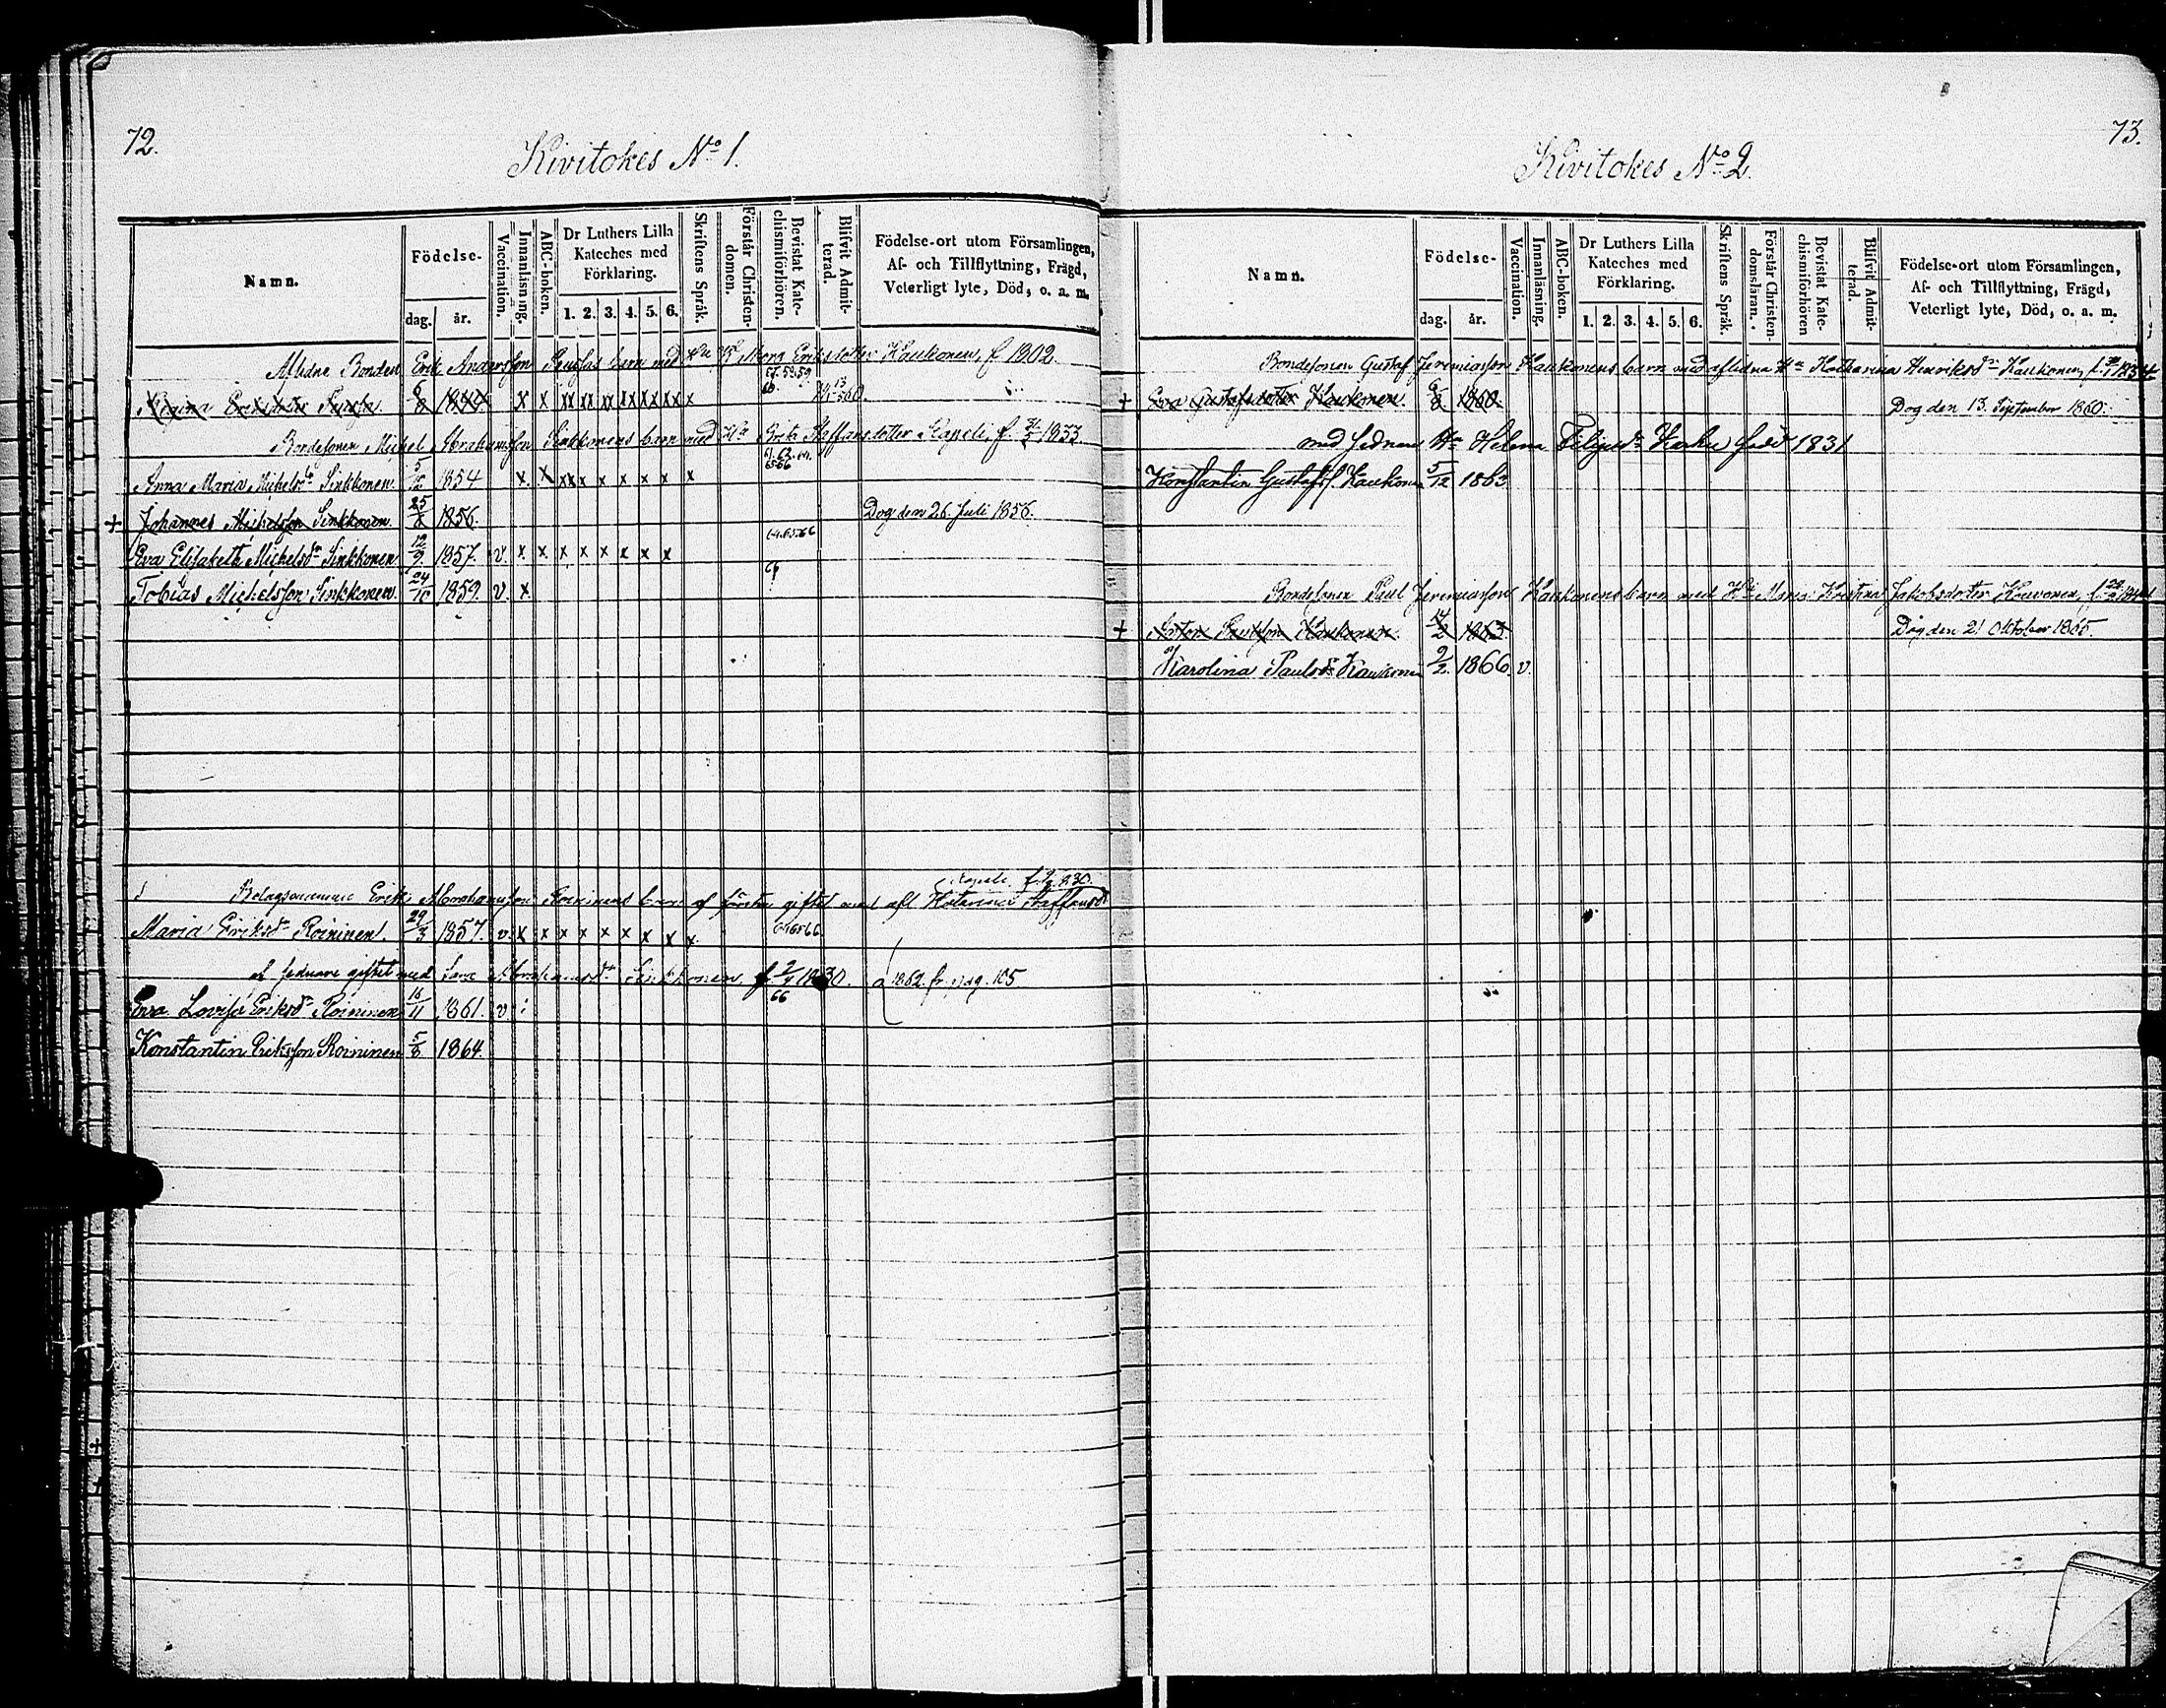 72.
Kivitokes No 1.
Namn.
Födelse-
dag. år.
Vaccination.
Innanläsning.
ABC-boken.
Dr Luthers Lilla Kateches med Förklaring.
1. 2. 3. 4. 5. 6.
Skriftens Språk.
Förstår Christendomen.
Bevistat Katechismiförhören.
Blifvit Admitterad.
Födelse-ort utom Församlingen,
Af- och Tillflyttning, Frägd,
Veterligt lyte, Död, o. a. m.
Aflidne Bonden Erik Andersson barn med Eriksdotter Kaukonen, f 1802.
57. 58. 59
6/8 x x xx xx xx xx xx xx x 60. 1860.
Bondesonen Michel Abrahamsson Sinkkonens barn med Hu Brita Staffansdotter Kapeli, f. 1833.
Anna Maria Michelsdr Sinkkonen. 1854 x. x xx x x x x x x 65 66
+ Johannes Michelsson Sinkkonen. 25/ 1856. Dog den 26. Juli 1856.
Eva Elisabeth Michelsdr Sinkkonen 12/9. 1857. v. x x x x x x x x 64.65.66
Tobias Michelsson Sinkkonen. 24/10 1859. v. x
Erik Abrahamsson Roininens barn af första giftet med afl Staffansdr Kapeli f. 1830.
Maria Eriksdr Roininen. 29/3 1857. v. x x x x x x x x x.
af sednare giftet med Abrahamsdr Sinkkonen f 1830. 1862. fr. pag. 105
Eva Lovisa Eriksdr Roininen 16/11 1861. v 66
Konstantin Eriksson Roininen 5/8 1864.
73.
Kivitokes No 2.
Namn.
Födelse-
dag. år.
Vaccination.
Innanläsning.
ABC-boken.
Dr Luthers Lilla Kateches med Förklaring.
1. 2. 3. 4. 5. 6.
Skriftens Språk.
Förstår Christendomsläran.
Bevistat Katechismiförhören
Blifvit Admitterad.
Födelse-ort utom Församlingen,
Af- och Tillflyttning, Frägd,
Veterligt lyte, Död, o. a. m.
Bondesonen Gustaf Jeremiasson Kaukonens barn med aflidna Hu Katharina Henriksdr Kaukonen, f.
+ Eva Gustafsdotter Kaukonen. 6/8. 1860. Dog den 13. September 1860.
med sednare Hu Helena Filipsdr född 1831
Konstantin Gustafss Kaukonen 5/12 1863
Bondesonen Paul Jeremiasson Kaukonens barn med Hu Maria Kristina Jakobsdotter
+ Anton Paulsson Kaukonen. 14/2 1863. Dog den 21 Oktober 1865.
Karolina Paulsdr Kaukonen 9/2. 1866. v.